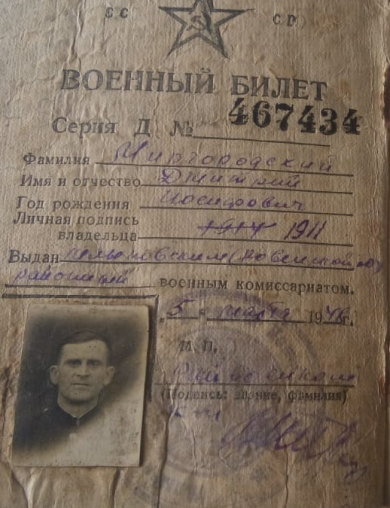 СС СР
ВОЕННЫЙ БИЛЕТ
Серия Д № 467434
Фамилия Миргородский
Имя и отчество Дмитрий
Год рождения Иосифович
Личная подпись
владельца 1914 1911
Выдан
районным военным комиссариатом.
5 " марта 1948г.
М. П.
Райвоенком
(Подпись: звание, фамилия)